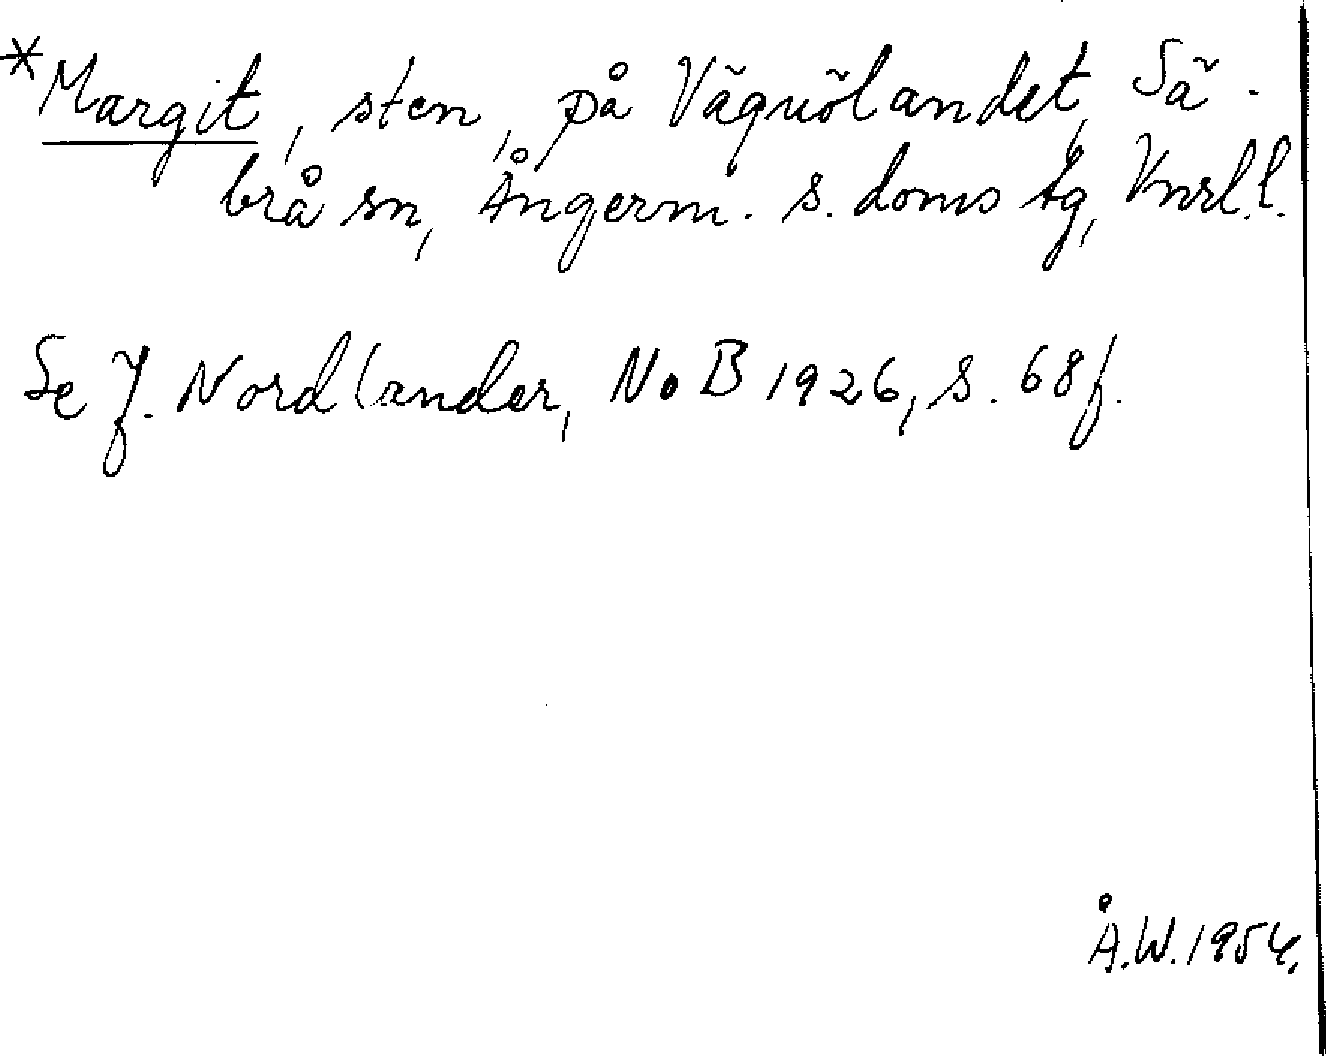 *Margit, sten, på Vägnölandet, Sä-
brå sn, Ångerm. s. doms tg, Vnrl.l.
Se J. Nordlander, NoB 1926, s. 68f.
Å.W. 1954.